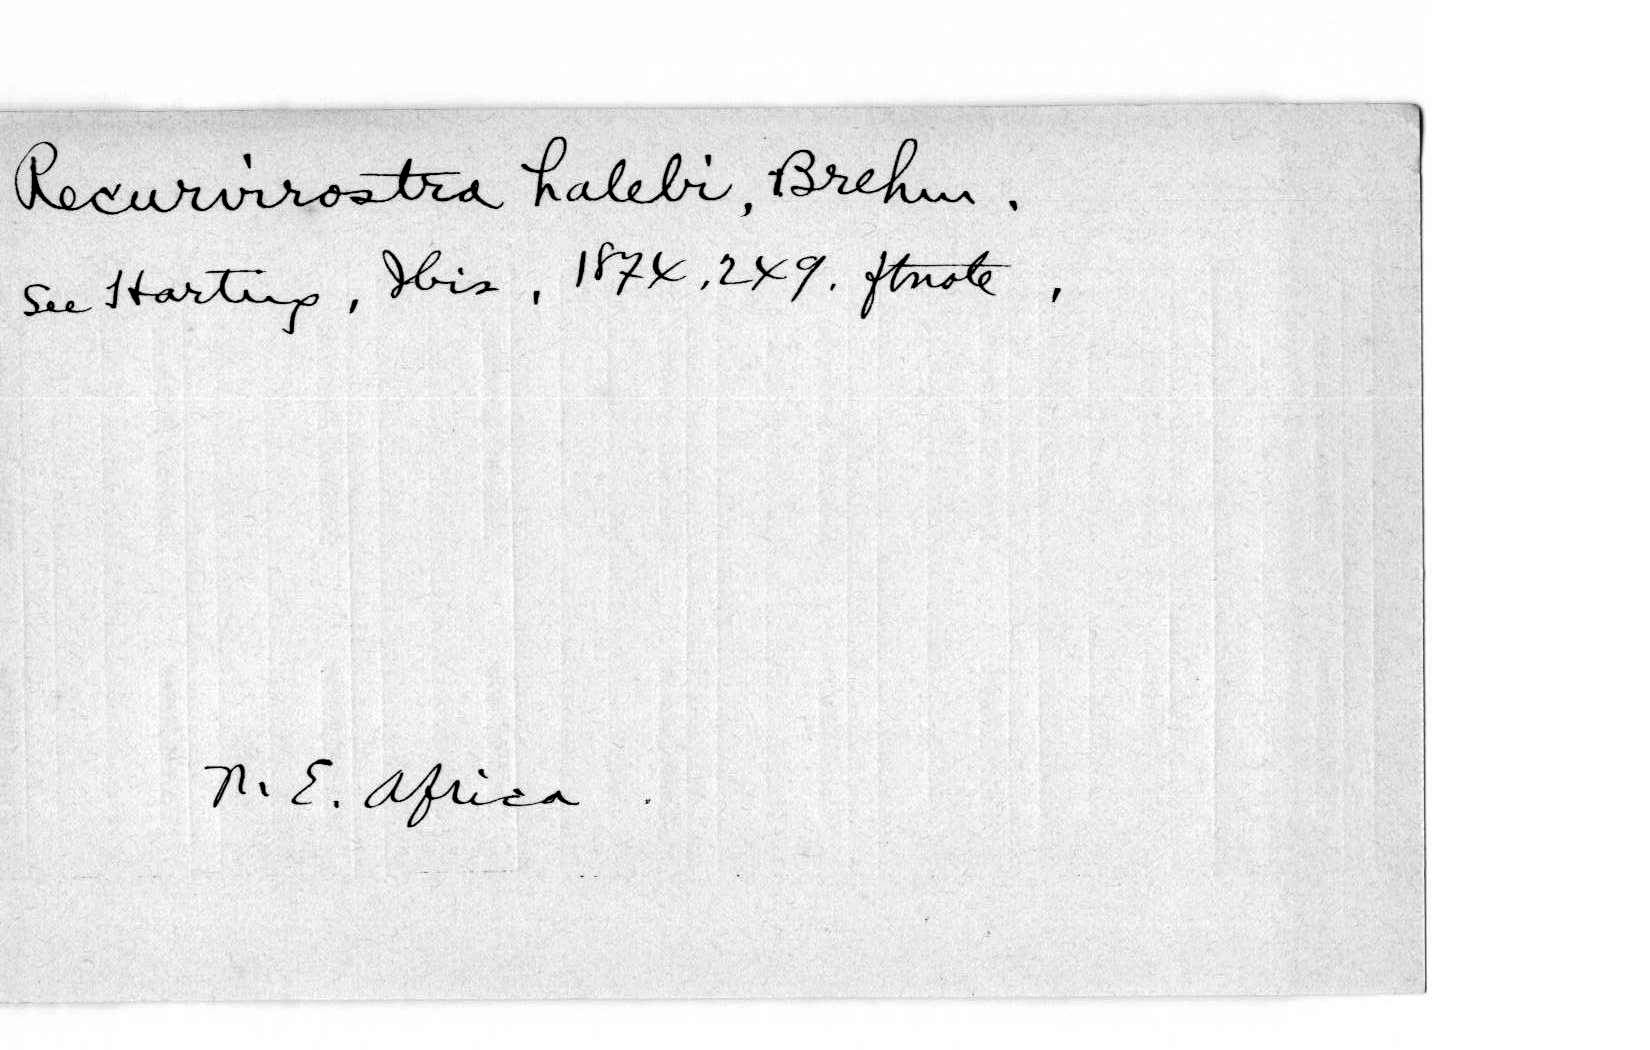 Recurvirostra halebi, Brehm.
See Harting, Ibis, 1874, 249. ftnote,
N. E. Africa.